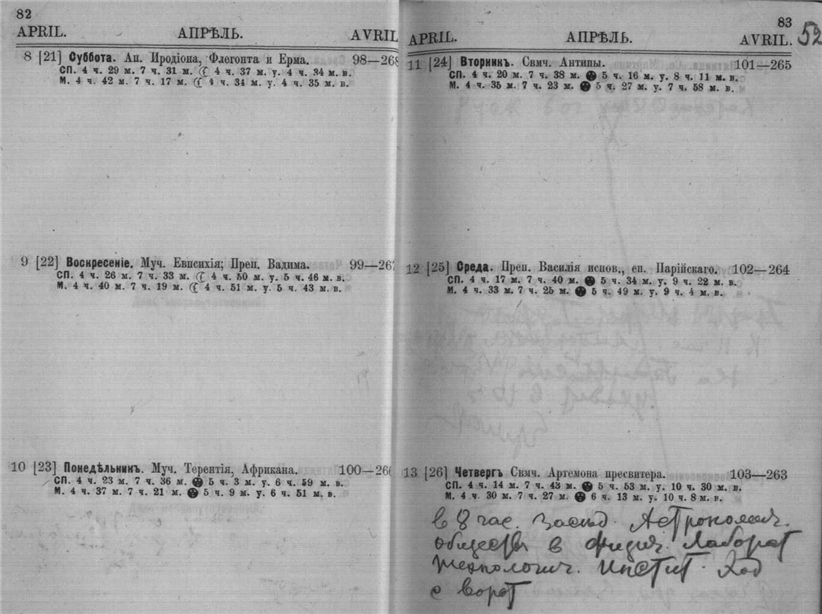 82
APRIL. АПРѢЛЬ. AVRIL
8 [21] Суббота. Ап. Иродіона, Флегонта и Ерма. 98—268
СП. 4 ч. 29 м. 7 ч. 31 м. 4 ч. 37 м. у. 4 ч. 34 м. в.
М. 4 ч. 42 м. 7 ч. 17 м. 4 ч. 34 м. у. 4 ч. 35 м. в.
9 [22] Воскресеніе. Муч. Евпсихія; Преп. Вадима. 99—267
СП. 4 ч. 26 м. 7 ч. 33 м. 4 ч. 50 м. у. 5 ч. 46 м. в.
М. 4 ч. 40 м. 7 ч. 19 м. 4 ч. 51 м. у. 5 ч. 43 м. в.
10 [23] Понедѣльникъ. Муч. Терентія, Африкана. 100—266
СП. 4 ч. 23 м. 7 ч. 36 м. 5 ч. 3 м. у. 6 ч. 59 м. в.
М. 4 ч. 37 м. 7 ч. 21 м. 5 ч. 9 м. у. 6 ч. 51 м. в.
83
APRIL. АПРѢЛЬ. AVRIL. 52
11 [24] Вторникъ. Свмч. Антипы. 101—265
СП. 4 ч. 20 м. 7 ч. 38 м. 5 ч. 16 м. у. 8 ч. 11 м. в.
М. 4 ч. 35 м. 7 ч. 23 м. 5 ч. 27 м. у. 7 ч. 58 м. в.
12 [25] Среда. Преп. Василія испов., еп. Парійскаго. 102—264
СП. 4 ч. 17 м. 7 ч. 40 м. 5 ч. 34 м. у. 9 ч. 22 м. в.
М. 4 ч. 33 м. 7 ч. 25 м. 5 ч. 49 м. у. 9 ч. 4 м. в.
13 [26] Четвергъ Свмч. Артемона пресвитера. 103—263
СП. 4 ч. 14 м. 7 ч. 43 м. 5 ч. 53 м. у. 10 ч. 30 м. в.
М. 4 ч. 30 м. 7 ч. 27 м. 6 ч. 13 м. у. 10 ч. 8 м. в.
в 8 час. Засѣд. Астрономич.
общества в физич. Лаборат
технологич. Инстит. Ход
с ворот